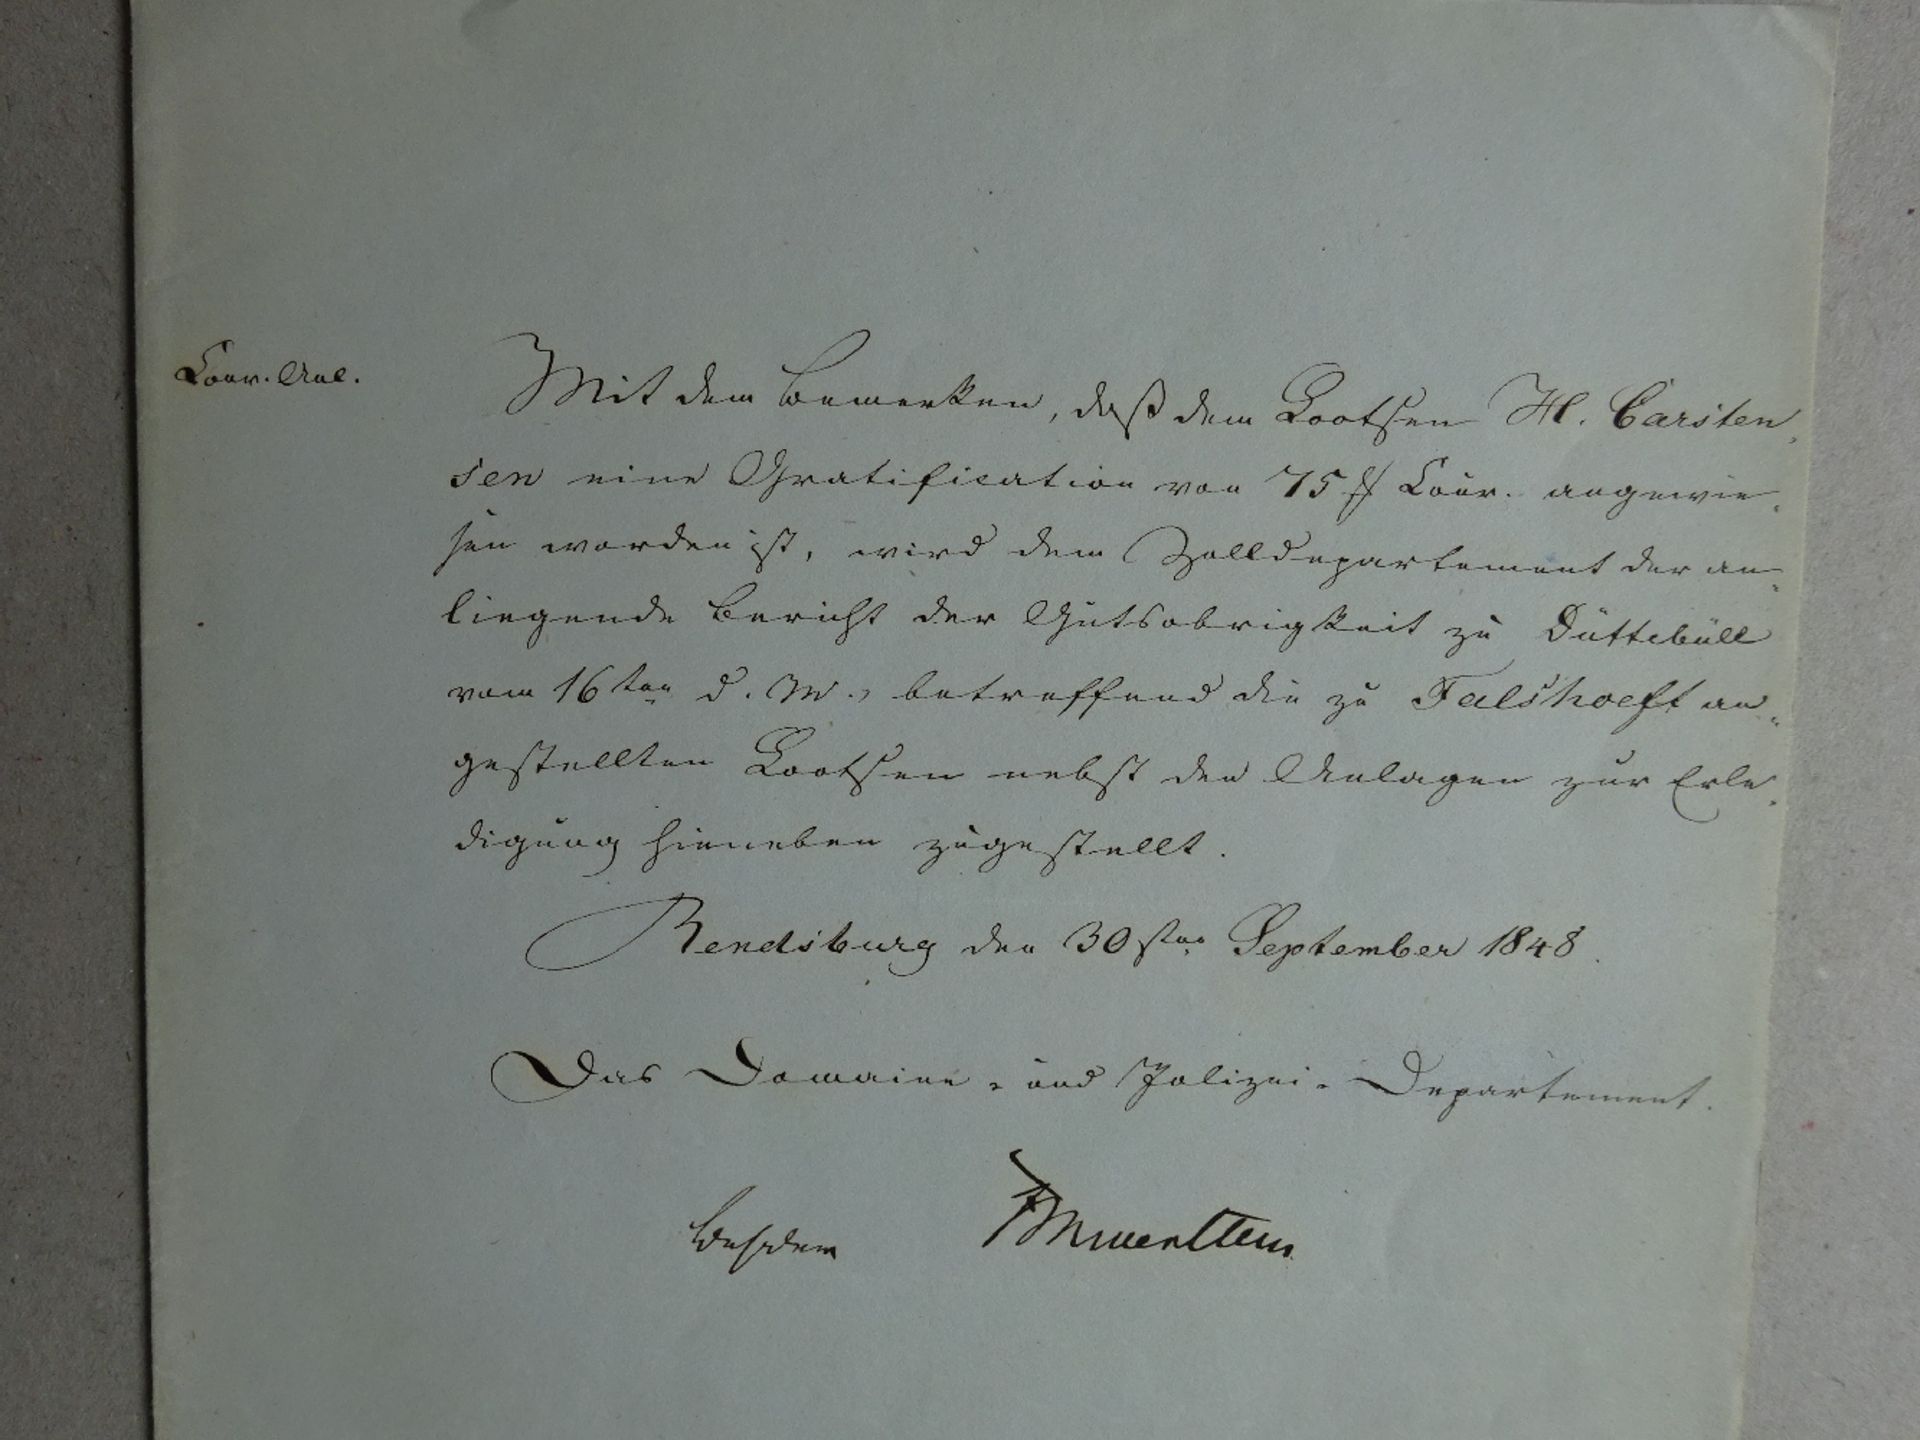 Mit dem Bemerken, daß dem Lootsen H. Carsten-
sen eine Gratification von 75 ₰ Cour. angewie-
sen worden ist, wird dem Zolldepartement der an-
liegende Bericht der Gutsobrigkeit zu Düttebüll
vom 16ten d. M., betreffend die zu Falshoeft an-
gestellten Lootsen nebst den Anlagen zur Erle-
digung hieneben zugestellt.
Rendsburg den 30sten September 1848.
Das Domaine- und Polizei-Departement.